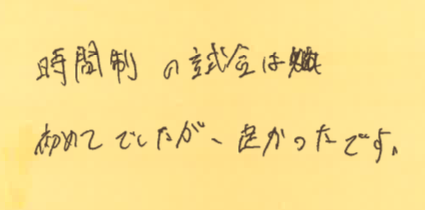 時間制の試合は
初めてでしたが、良かったです。